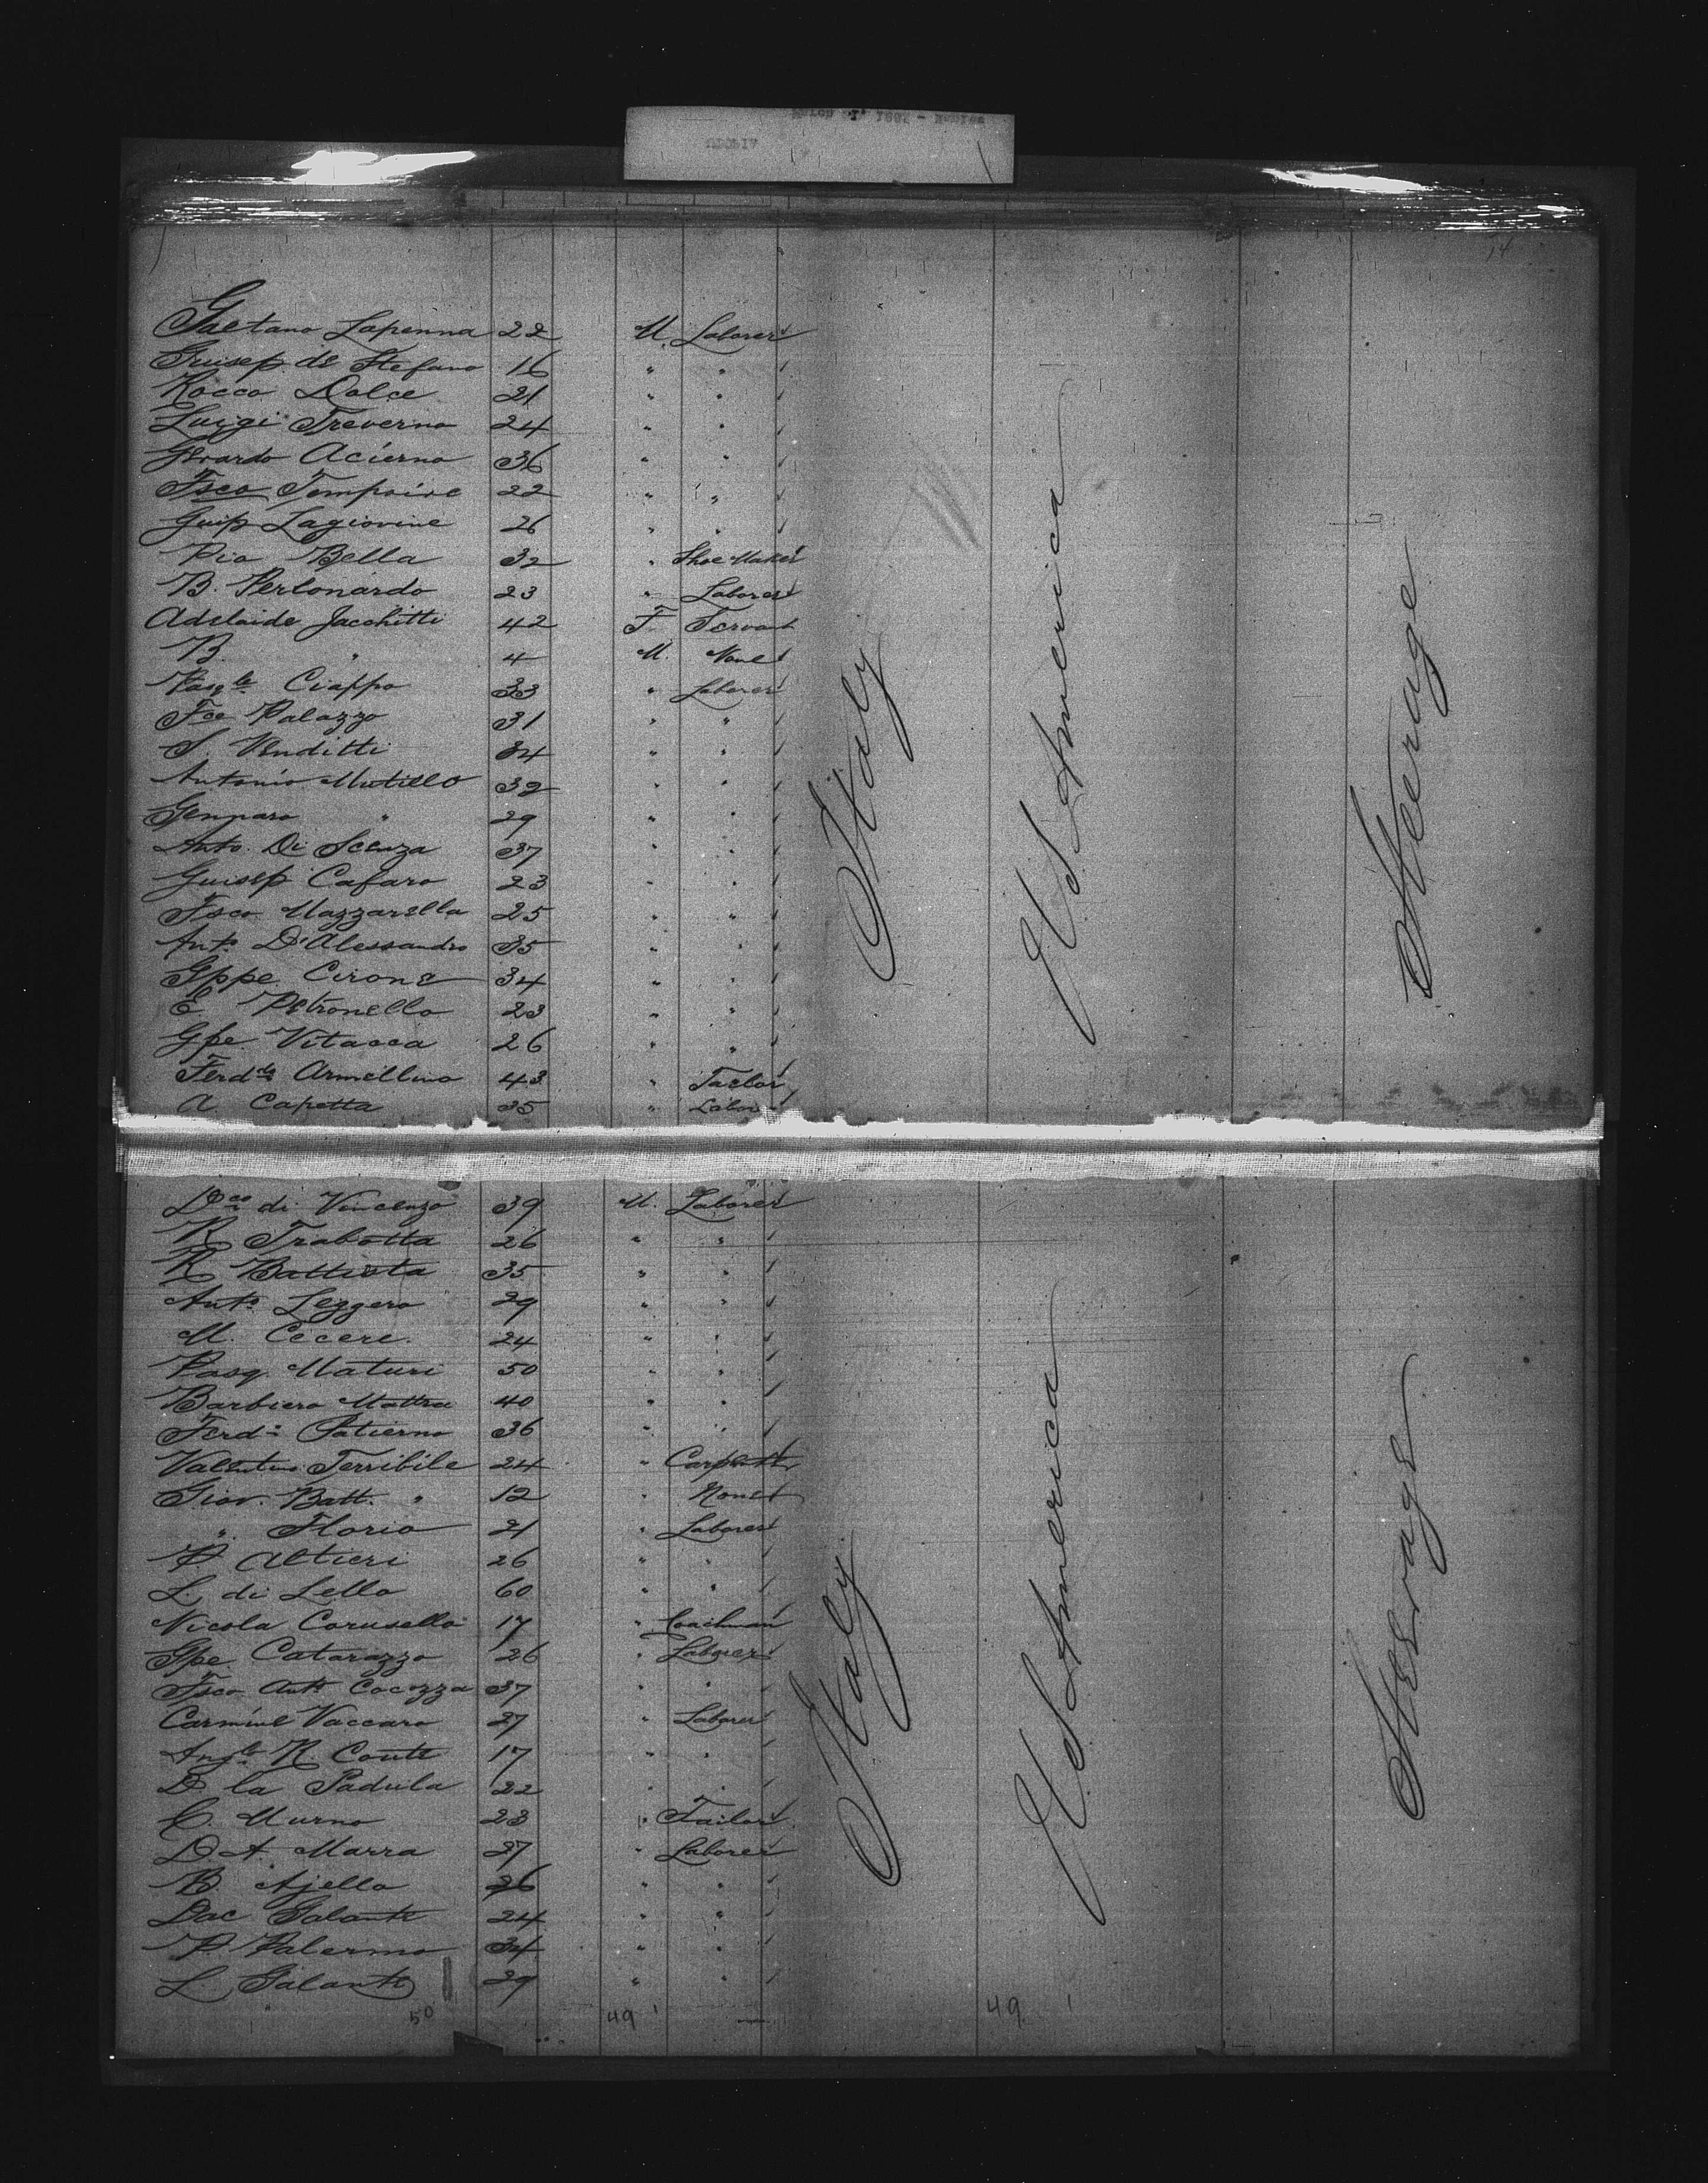 14
Gaetano Lapenna 22 M. Laborer
Guisep. de Stefano 16 " "
Rocco Dolce 21 " "
Luigi Treverno 24 " "
Gerardo Acierno 36 " "
Fsco 22 " "
Guip Lagiovine 26 " "
Pio Bella 32 " Shoe Maker
B. Perlonardo 23 " Laborer
Adelaide Jacchitti 42 F. Servant
B. " 4 M. None
Pasqle Ciappo 33 " Laborer
Fco Palazzo 31 " "
S. Venditti 34 " "
Antonio Mutillo 32 " "
Gennaro " 29 " "
Anto. Di Scenza 37 " "
Guisep Cafaro 23 " "
Fsco Mazzarella 25 " "
Anto D'Alessandro 35 " "
Gppe Cirone 34 " "
E. Petronello 23 " "
Gpe Vitacca 26 " "
Ferddo Armellino 43 " Taelor
A Capetta 35 " Labor
Italy
U.S. America
Steerage
Dco di Vincenzo 39 M. Laborer
R Trabotta 26 " "
R Battista 35 " "
Anto Leggero 29 " "
M. Cecere. 24 " "
Pasq. Maturi 50 " "
Barbiero Mattea 40 " "
Ferdo Patierno 36 " "
Valentino Terribile 24 " Carpenter
Giov. Batt. " 12 " None
" Florio 21 " Laborer
P. Altieri 26 " "
L. di Lello 60 " "
Nicola Carusello 17 " Coachman
Gpe Catarazzo 26 " Laborer
Fsco Anto Cocozza 37 " "
Carmine Vaccaro 27 " Laborer
Anglo R. Conte 17 " "
D. la Padula 22 " "
C. Murno 23 " Tailor
D. A. Marra 27 " Laborer
B. Ajello 26 " "
Dac Galante 24 " "
P. Palermo 34 " "
L. Galante 29 " "
Italy
U.S. America
Steerage
50 49 49